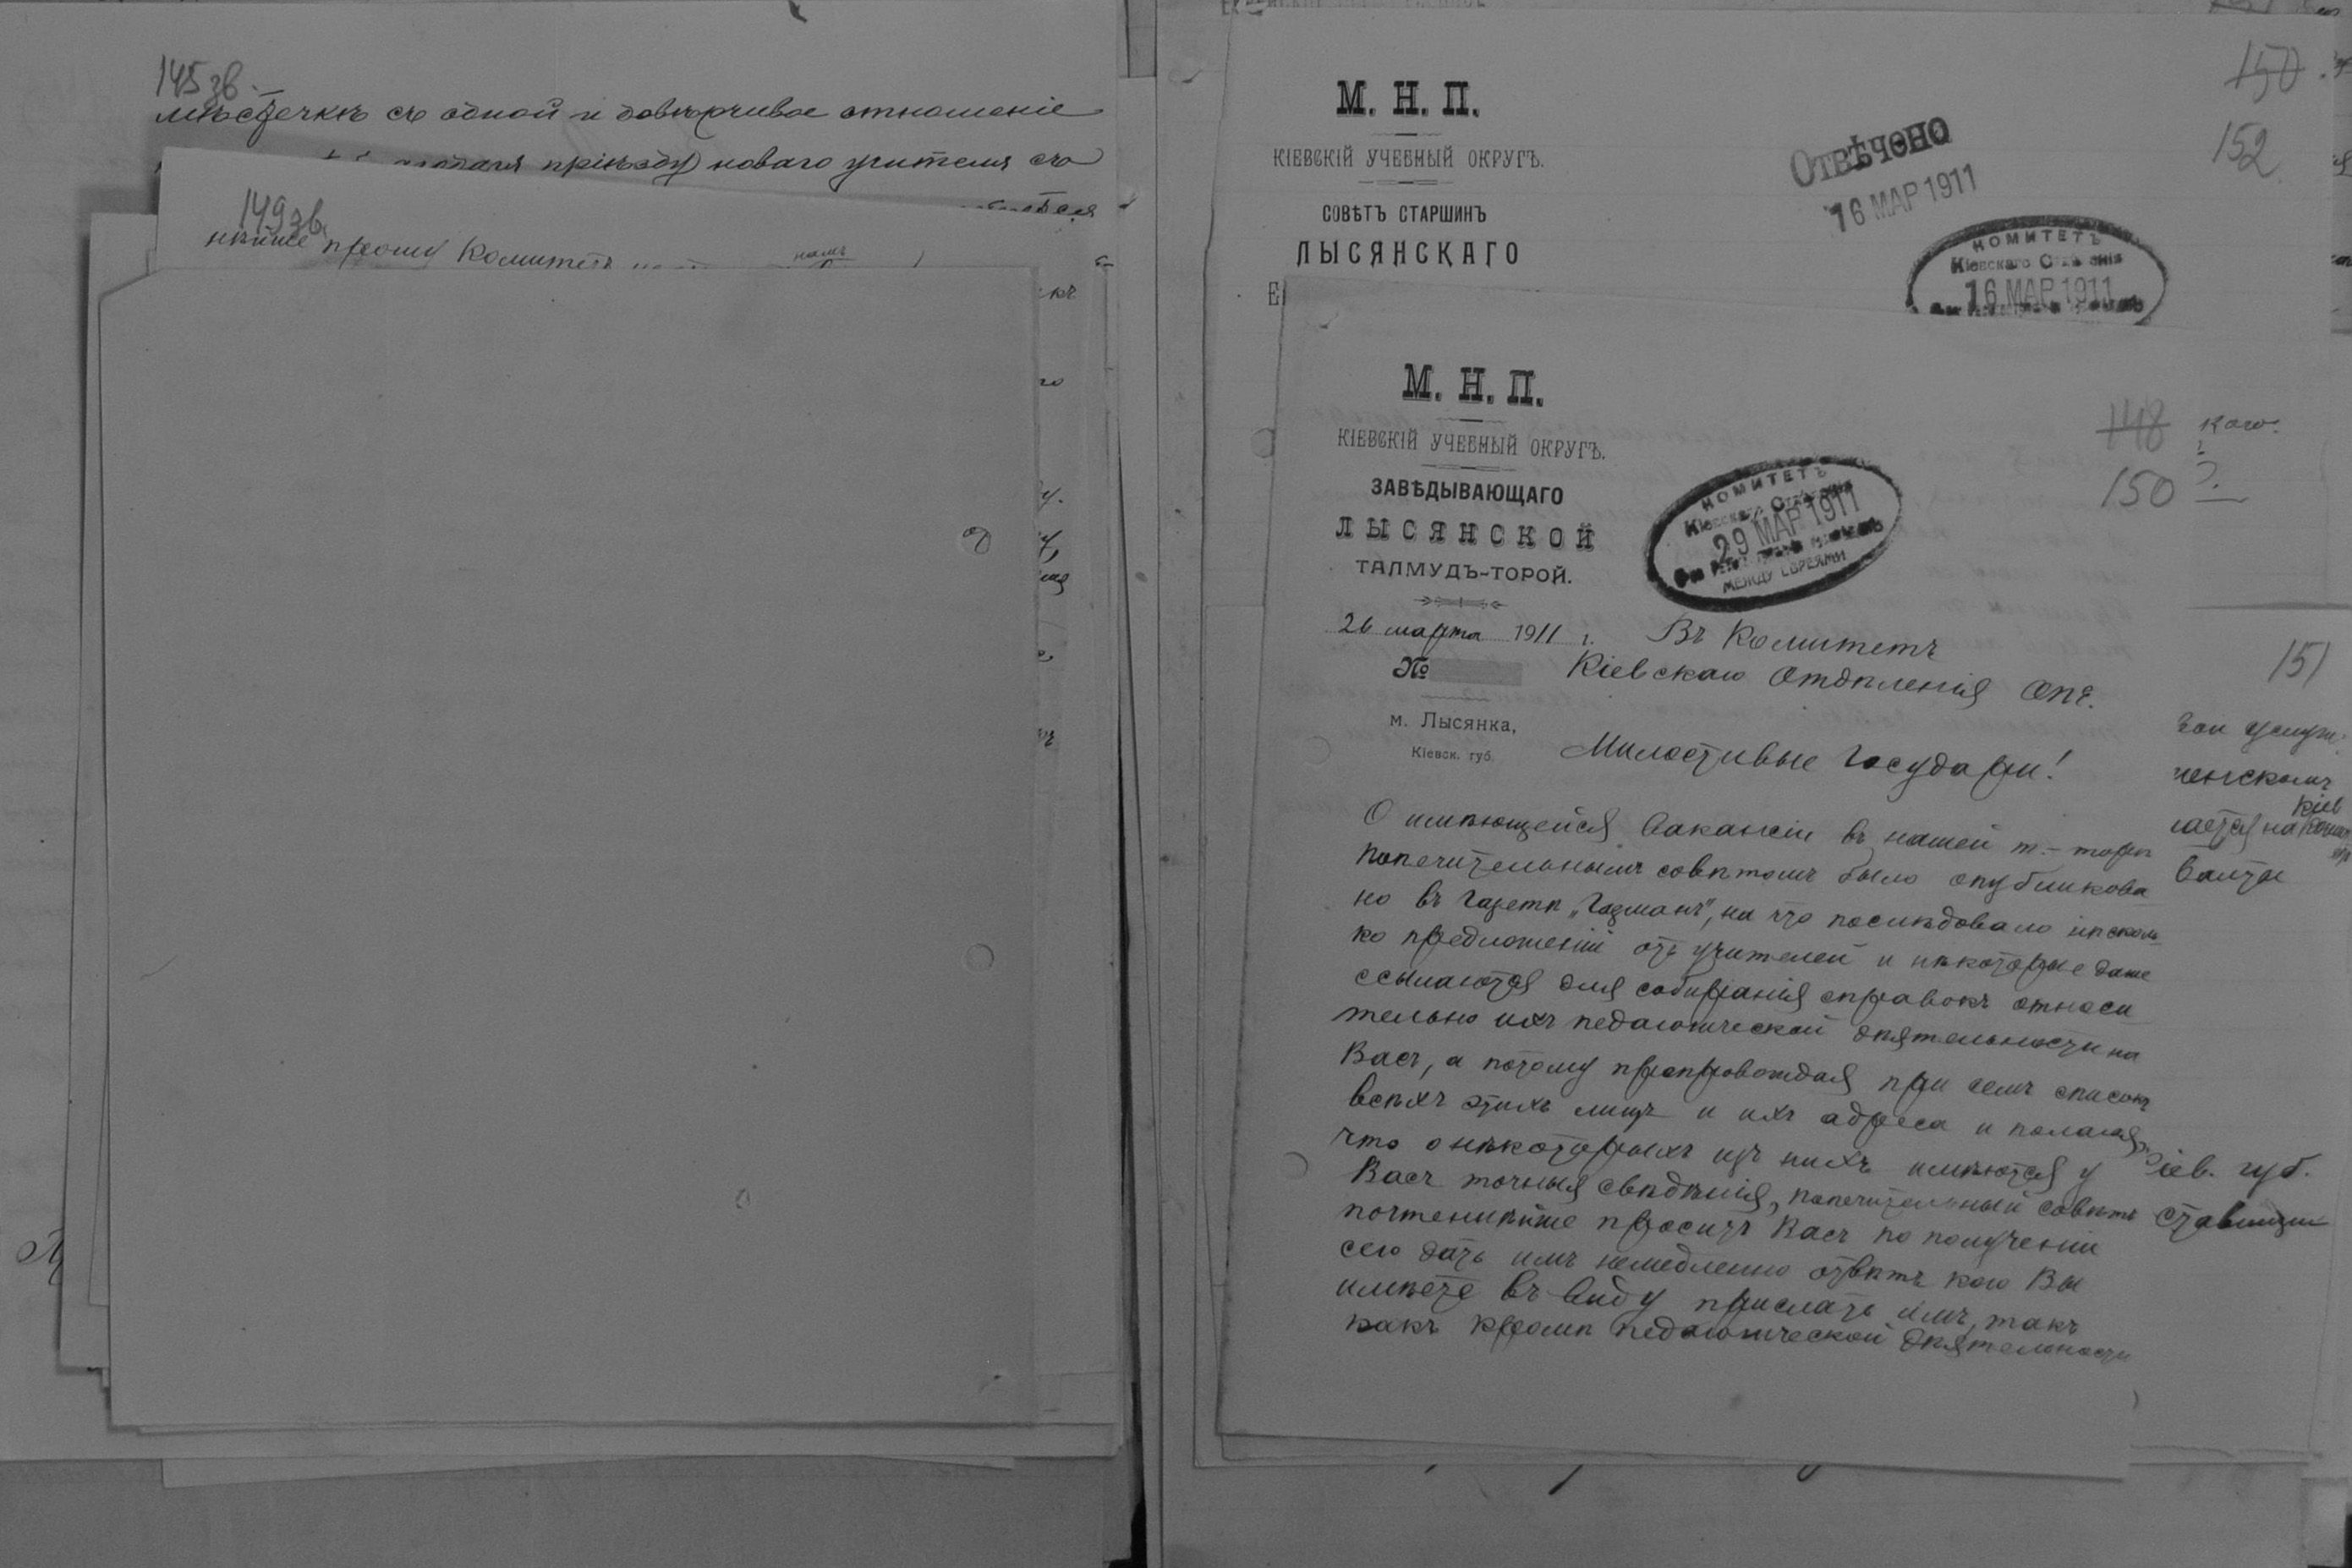 145 зв.
мѣстечкѣ съ одной и довѣрчивое отношеніе
пріѣзду новаго учителя съ
149 зв.
нѣйше прошу Комитетъ
намъ
М. Н. П.
КІЕВСКІЙ УЧЕБНЫЙ ОКРУГЪ.
СОВѢТЪ СТАРШИНЪ
ЛЫСЯНСКАГО
Отвѣчено
16 МАР 1911
КОМИТЕТЪ
Кіевскаго
16 МАР 1911
150
152
М. Н. П.
КІЕВСКІЙ УЧЕБНЫЙ ОКРУГЪ.
ЗАВѢДЫВАЮЩАГО
ЛЫСЯНСКОЙ
ТАЛМУДЪ-ТОРОЙ.
КОМИТЕТЪ
Кіевскаго
29 МАР 1911
МЕЖДУ ЕВРЕЯМИ
148
150
26 марта 1911 г.
№
м. Лысянка,
Кіевск. губ.
Въ Комитетъ
Кіевскаго Отдѣленія ОПЕ.
Милостивые Государи!
О имѣющейся вакансіи въ нашей т.-торѣ
попечительнымъ совѣтомъ было опубликова
но въ газетѣ „Газманъ", на что послѣдовало нѣсколь
ко предложеній отъ учителей и нѣкоторые даже
ссылаются для собиранія справокъ относи
тельно ихъ педагогической дѣятельности на
Васъ, а потому препровождая при семъ списокъ
всѣхъ этихъ лицъ и ихъ адреса и полагая,
что о нѣкоторыхъ изъ нихъ имѣются у
Васъ точныя свѣдѣнія, попечительный совѣтъ
почтеннѣйше проситъ Васъ по полученіи
сего дать имъ немедленно отвѣтъ кого Вы
имѣете въ виду прислать имъ, такъ
какъ кромѣ педагогической дѣятельности
151
ленскомъ
Кіев
ается на
губ.